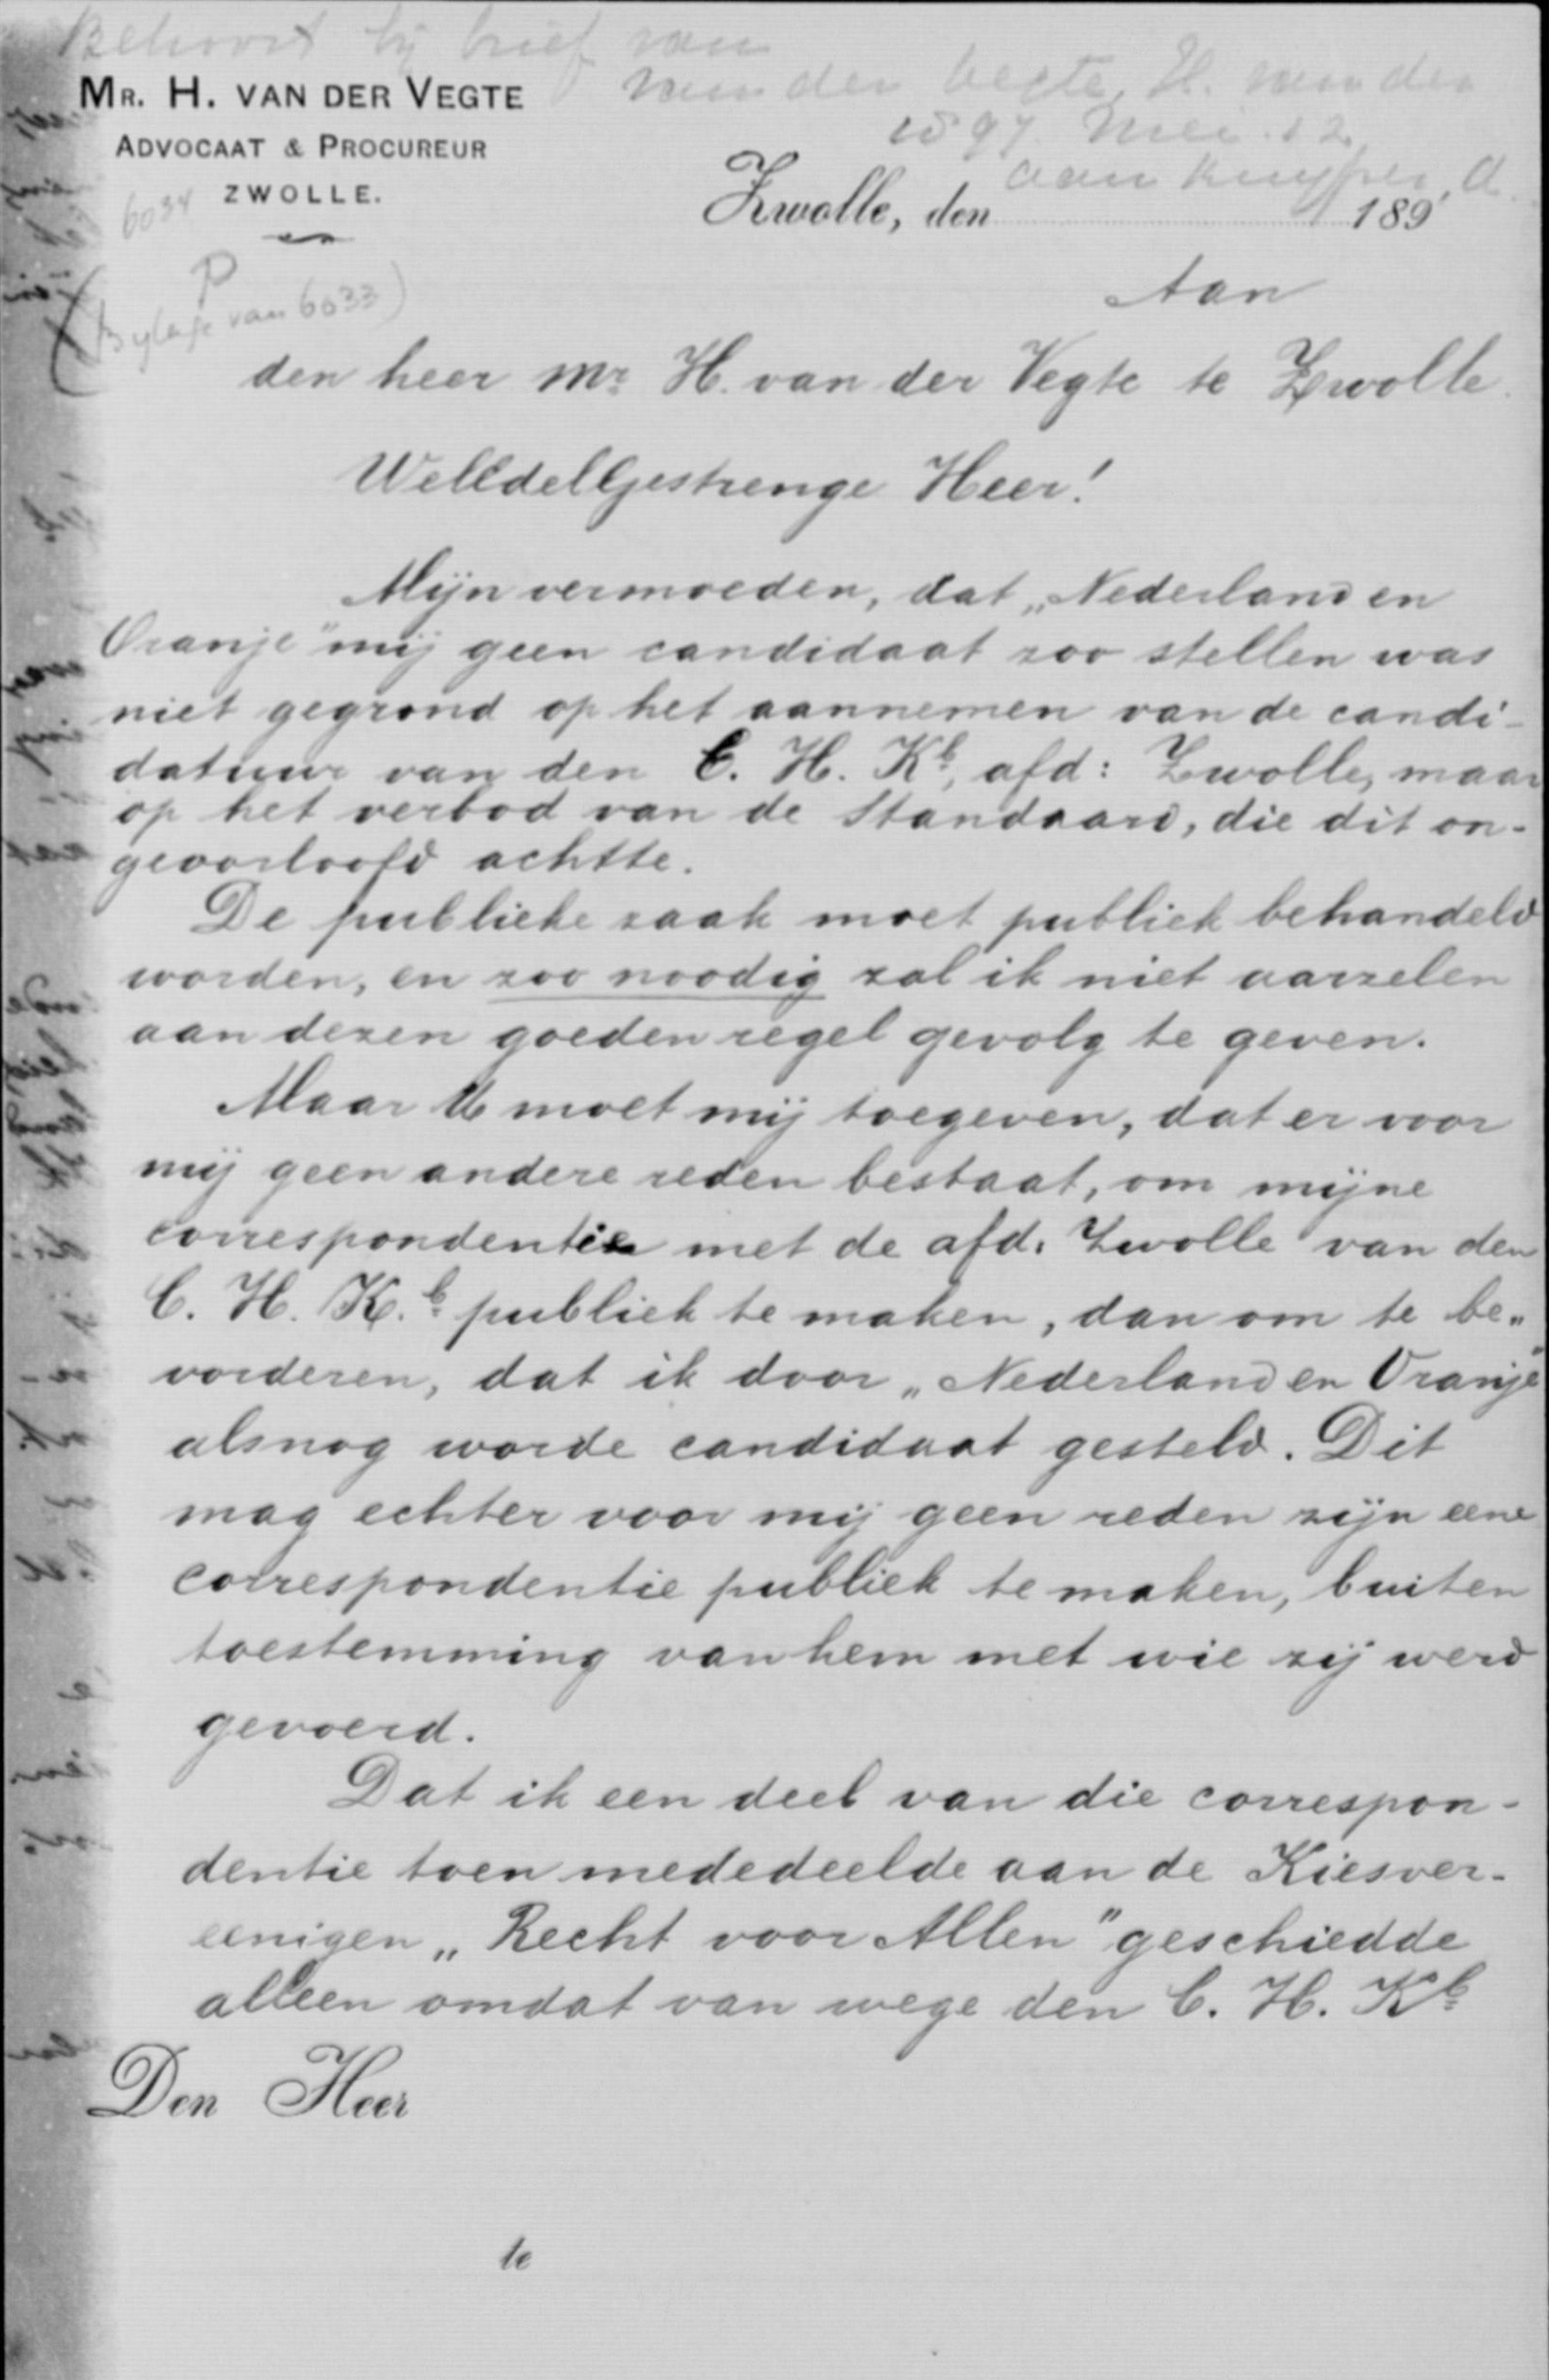 Behoort bij brief van
van der Vegte, H. van der
1897 Mei 12
aan Kuyper, A.
MR. H. VAN DER VEGTE
ADVOCAAT & PROCUREUR
ZWOLLE.
6034
P
(Bylage van 6033)
Zwolle, den 189
Aan
den heer Mr. H. van der Vegte te Zwolle.
WelEdelGestrenge Heer!
Mijn vermoeden, dat „Nederland en
Oranje" mij geen candidaat zoo stellen was
niet gegrond op het aannemen van de candi-
datuur van den C. H. Kb, afd: Zwolle, maar
op het verbod van de Standaard, die dit on-
geoorloofd achtte.
De publieke zaak moet publiek behandeld
worden, en zoo noodig zal ik niet aarzelen
aan dezen goeden regel gevolg te geven.
Maar U moet mij toegeven, dat er voor
mij geen andere reden bestaat, om mijne
correspondentie met de afd. Zwolle van den
C. H. K.b publiek te maken, dan om te be„
vorderen, dat ik door „Nederland en Oranje"
alsnog worde candidaat gesteld. Dit
mag echter voor mij geen reden zijn eene
correspondentie publiek te maken, buiten
toestemming van hem met wie zij werd
gevoerd.
Dat ik een deel van die correspon-
dentie toen mededeelde aan de Kiesver-
eenigen „Recht voor Allen" geschiedde
alleen omdat van wege den C. H. Kb
Den Heer
te